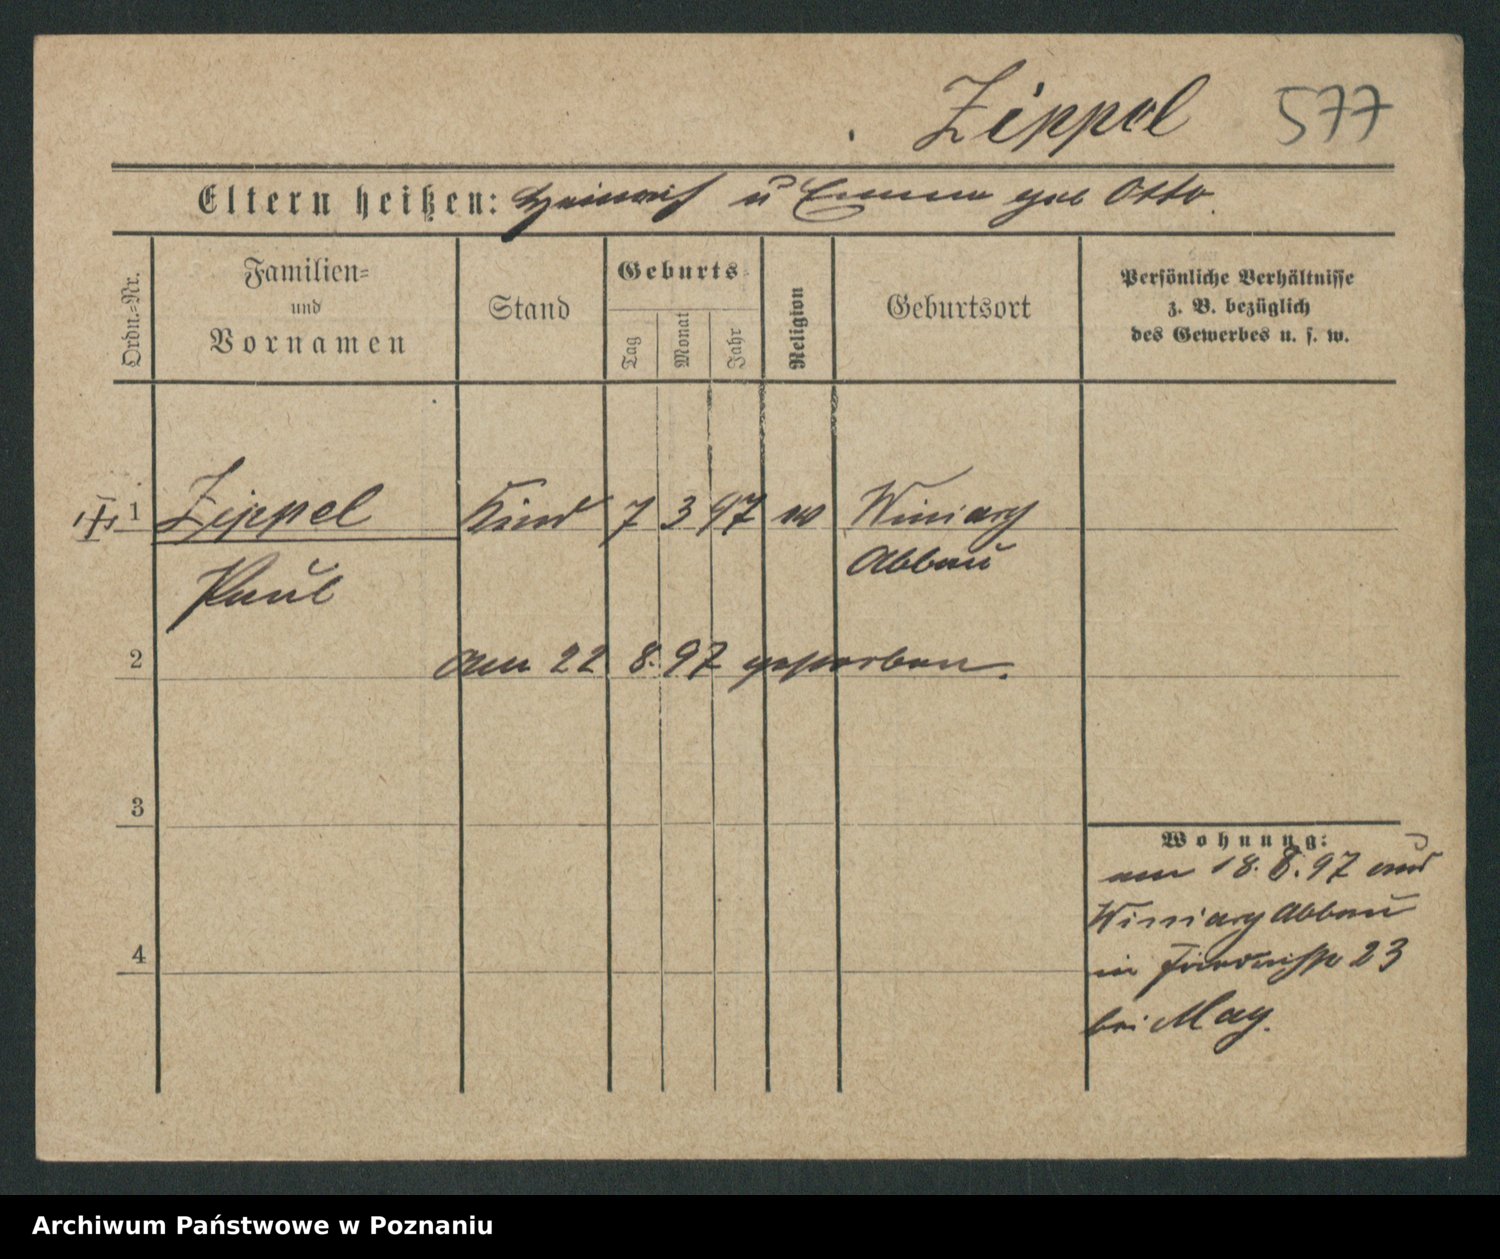 Zippel 577
Eltern heißen: Heinrich u Emma geb Otto.
Ordn.-Nr.
Familien- und Vornamen
Stand
Geburts-
Tag Monat Jahr
Religion
Geburtsort
Persönliche Verhältnisse
z. B. bezüglich
des Gewerbes u. s. w.
1 Zippel Kind 7 3 97 Winiary
Paul Abbau
2 am 22 8. 97 gestorben.
3
Wohnung:
am 18. 8. 97 aus
Winiary Abbau
4
in 23
bei May.
Archiwum Państwowe w Poznaniu